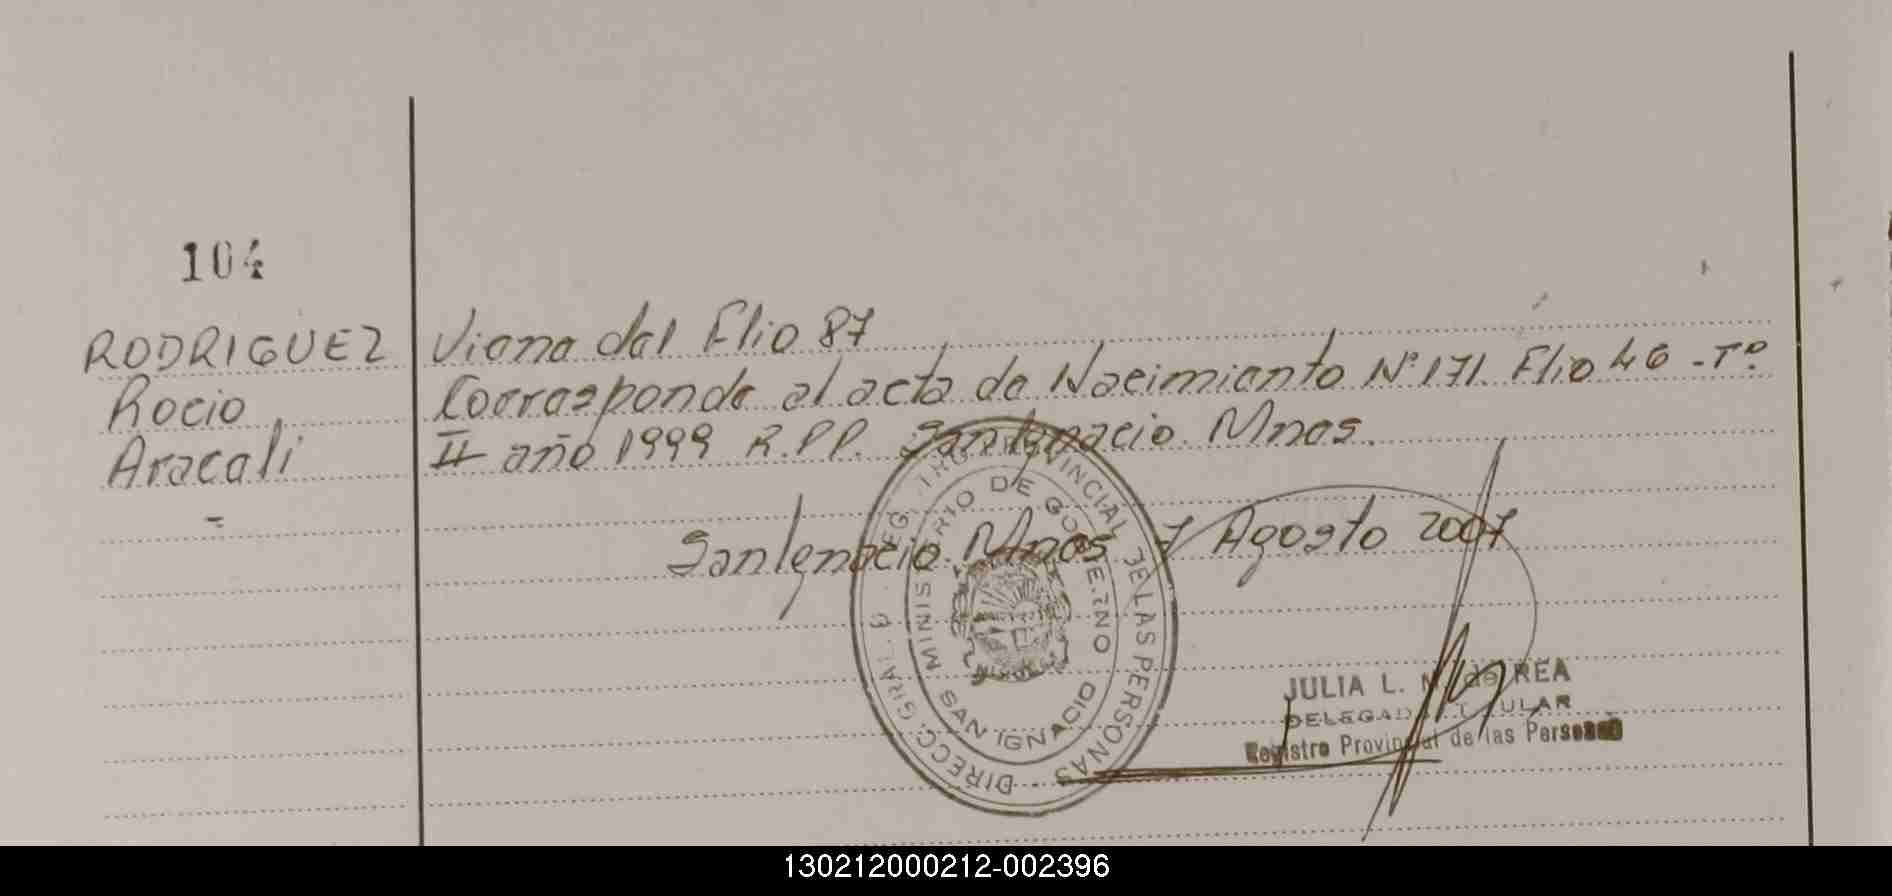 104
RODRIGUEZ
Rocio
Araceli
Viene del Flio 87
Corresponde al acta de Nacimiento Nº 171. Flio 46 - Tº
II año 1999 R.P.P. San Ignacio. Mnes.
San Ignacio. Mnes 7 Agosto 2007
DIRECC. GRAL. REG. PROVINCIAL DE LAS PERSONAS
MINISTERIO DE GOBIERNO
SAN IGNACIO
JULIA L. N. de REA
DELEGADA TITULAR
Registro Provincial de las Personas
130212000212-002396